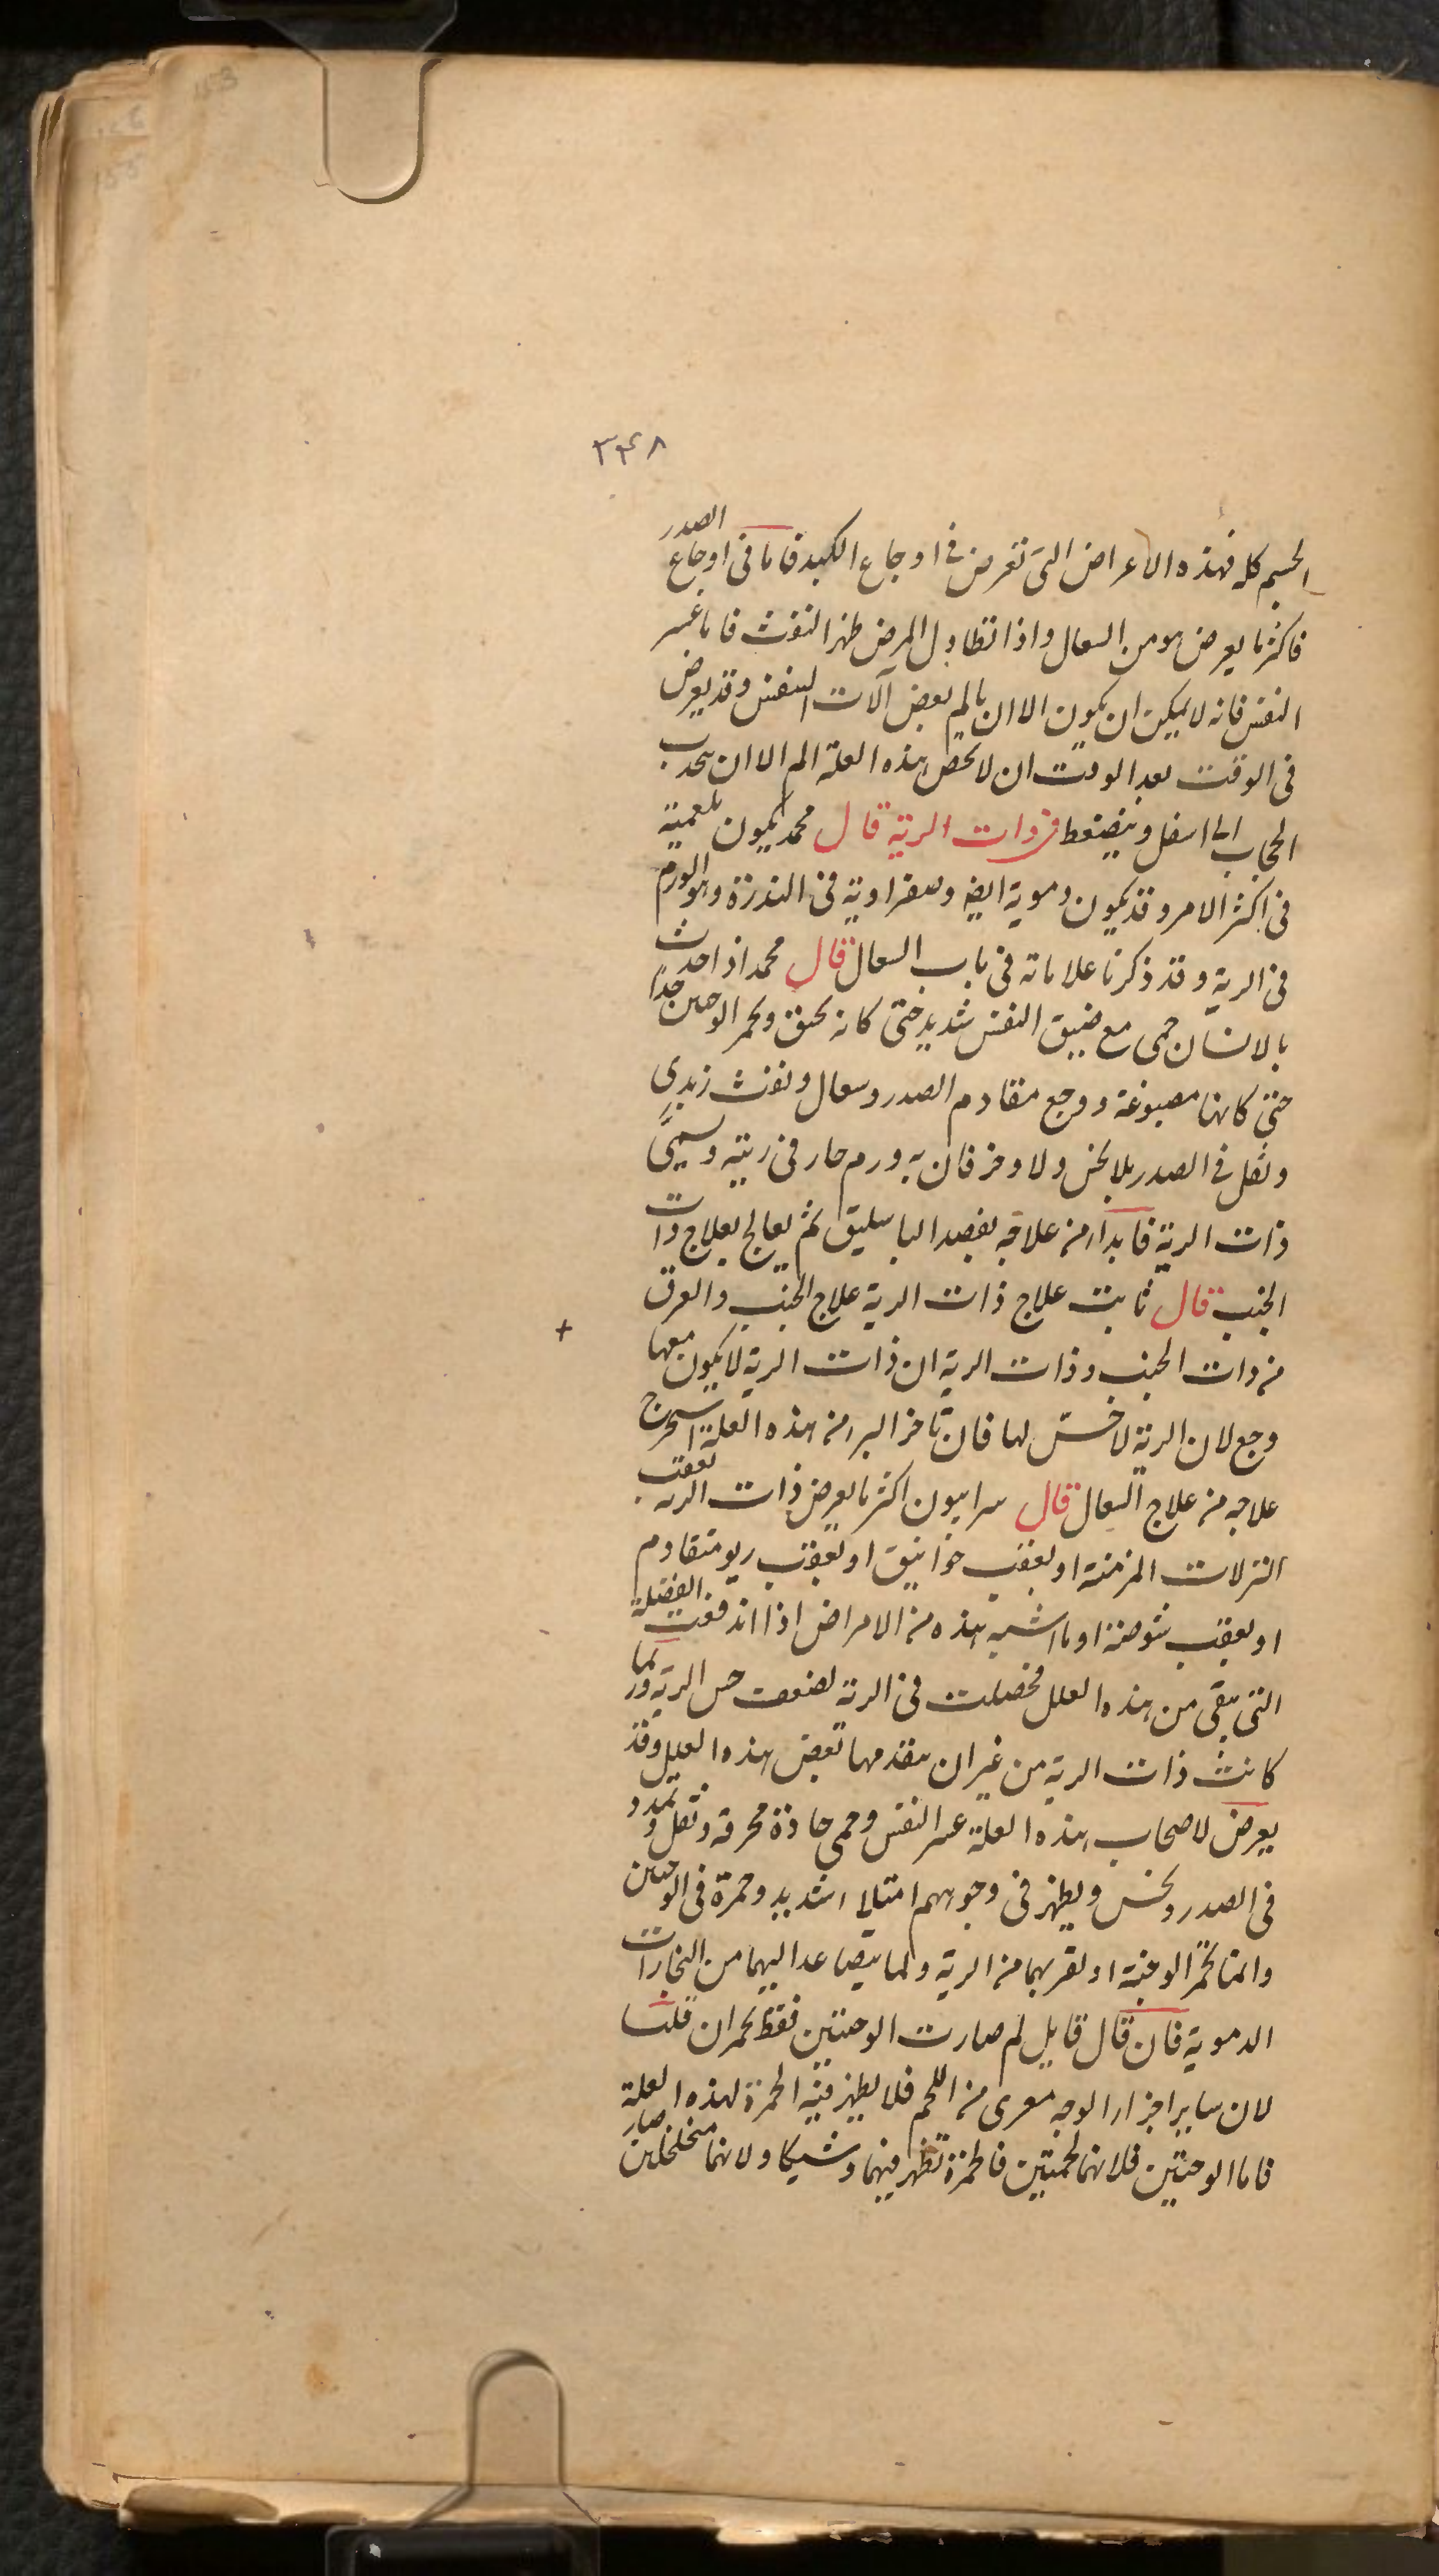 ۳۴۸
الجسم كله فهذه الاعراض التى تعرض فى اوجاع الكبد فاما فى اوجاع الصدر
فاكثر ما يعرض هو من السعال واذا تطاول المرض ظهر النفث فاما عسر
النفس فانه لا يمكن ان يكون الا ان يالم بعض آلات النفس وقد يعرض
فى الوقت بعد الوقت ان لا يخص هذه العلة الم الا ان ينجذب
الحجاب الى اسفل وينضغط فى ذات الرية قال محمد يكون بلغمية
فى اكثر الامر وقد يكون دموية ايضا وصفراوية فى الندرة وهو الورم
فى الرية وقد ذكرنا علاماته فى باب السعال قال محمد اذا حدث
بالانسان حمى مع ضيق النفس شديد حتى كانه يخنق ويحمر الوجنتين جدا
حتى كانها مصبوغة ووجع مقادم الصدر وسعال ونفث زبدى
وثقل فى الصدر بلا نخس ولا وخز فان به ورم حار فى ريته ويسمى
ذات الرية فابدا من علاجه بفصد الباسليق ثم يعالج بعلاج ذات
الجنب قال ثابت علاج ذات الرية علاج الجنب والفرق
من ذات الجنب وذات الرية ان ذات الرية لا يكون معها
وجع لان الرية لا حس لها فان تاخر البر من هذه العلة استخرج
علاجه من علاج السعال قال سرابيون اكثر ما يعرض ذات الرية بعقب
النزلات المزمنة او بعقب خوانيق او بعقب ربو متقادم
او بعقب شوصة او ما اشبه هذه من الامراض اذا اندفعت الفضلة
التى تبقى من هذه العلل فحصلت فى الرية لضعف حس الرية وربما
كانت ذات الرية من غير ان يتقدمها بعض هذه العلل وقد
يعرض لاصحاب هذه العلة عسر النفس وحمى حادة محرقة وثقل وتمدد
فى الصدر ونخس ويظهر فى وجوههم امتلاا شديد وحمرة فى الوجنتين
وانما تحمر الوجنة او لقربهما من الرية ولما يتصاعد اليهما من البخارات
الدموية فان قال قايل لم صارت الوجنتين فقط يحمران قلنا
لان ساير اجزاء الوجه معرى من اللحم فلا يظهر فيه الحمرة لهذه العلة
فاما الوجنتين فلانهما لحميتين فالحمرة تظهر فيهما وشيكا ولانهما متخلخلين صار